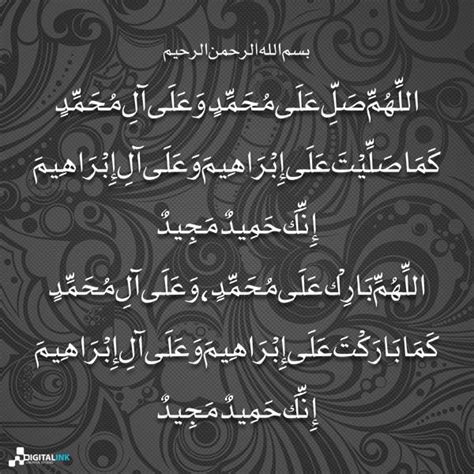 بسم الله الرحمن الرحيم
اللَّهُمَّ صَلِّ عَلَى مُحَمَّدٍ وَعَلَى آلِ مُحَمَّدٍ
كَمَا صَلَّيْتَ عَلَى إِبْرَاهِيمَ وَعَلَى آلِ إِبْرَاهِيمَ
إِنَّكَ حَمِيدٌ مَجِيدٌ
اللَّهُمَّ بَارِكْ عَلَى مُحَمَّدٍ، وَعَلَى آلِ مُحَمَّدٍ
كَمَا بَارَكْتَ عَلَى إِبْرَاهِيمَ وَعَلَى آلِ إِبْرَاهِيمَ
إِنَّكَ حَمِيدٌ مَجِيدٌ
DIGITALINK